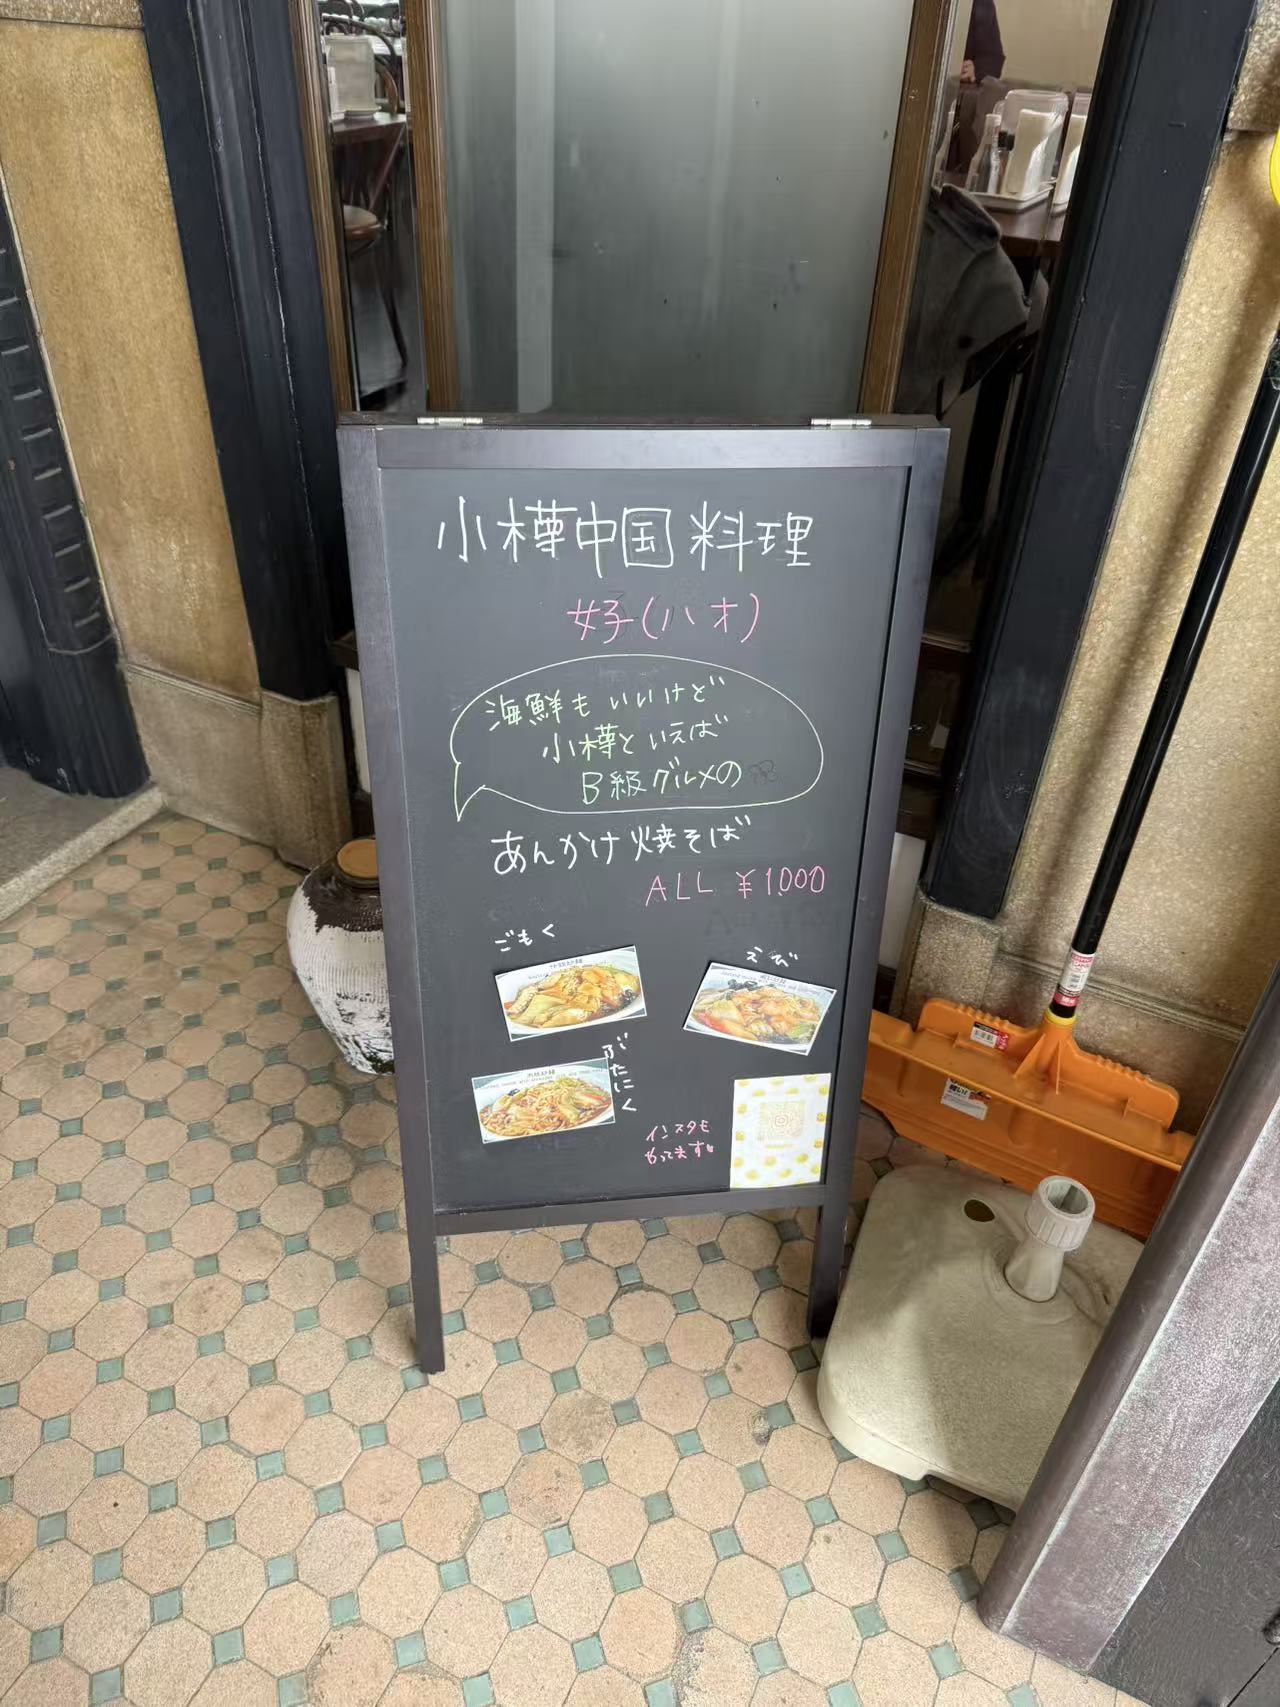 小樽中国料理
好(ハオ)
海鮮もいいけど
小樽といえば
B級グルメの
あんかけ焼そば
ALL ¥1,000
ごもく
えび
ぶたにく
インスタも
やってます